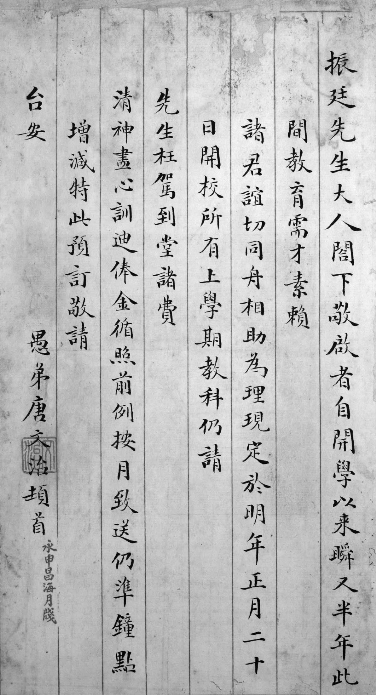 振廷先生大人閣下敬啟者自開學以来瞬又半年此
間教育需才素賴
諸君誼切同舟相助為理現定於明年正月二十
日開校所有上學期教科仍請
先生枉駕到堂諸費
清神盡心訓迪俸金循照前例按月致送仍準鐘點
增減特此預訂敬請
台安
愚弟唐文治頓首
永申昌海月牋